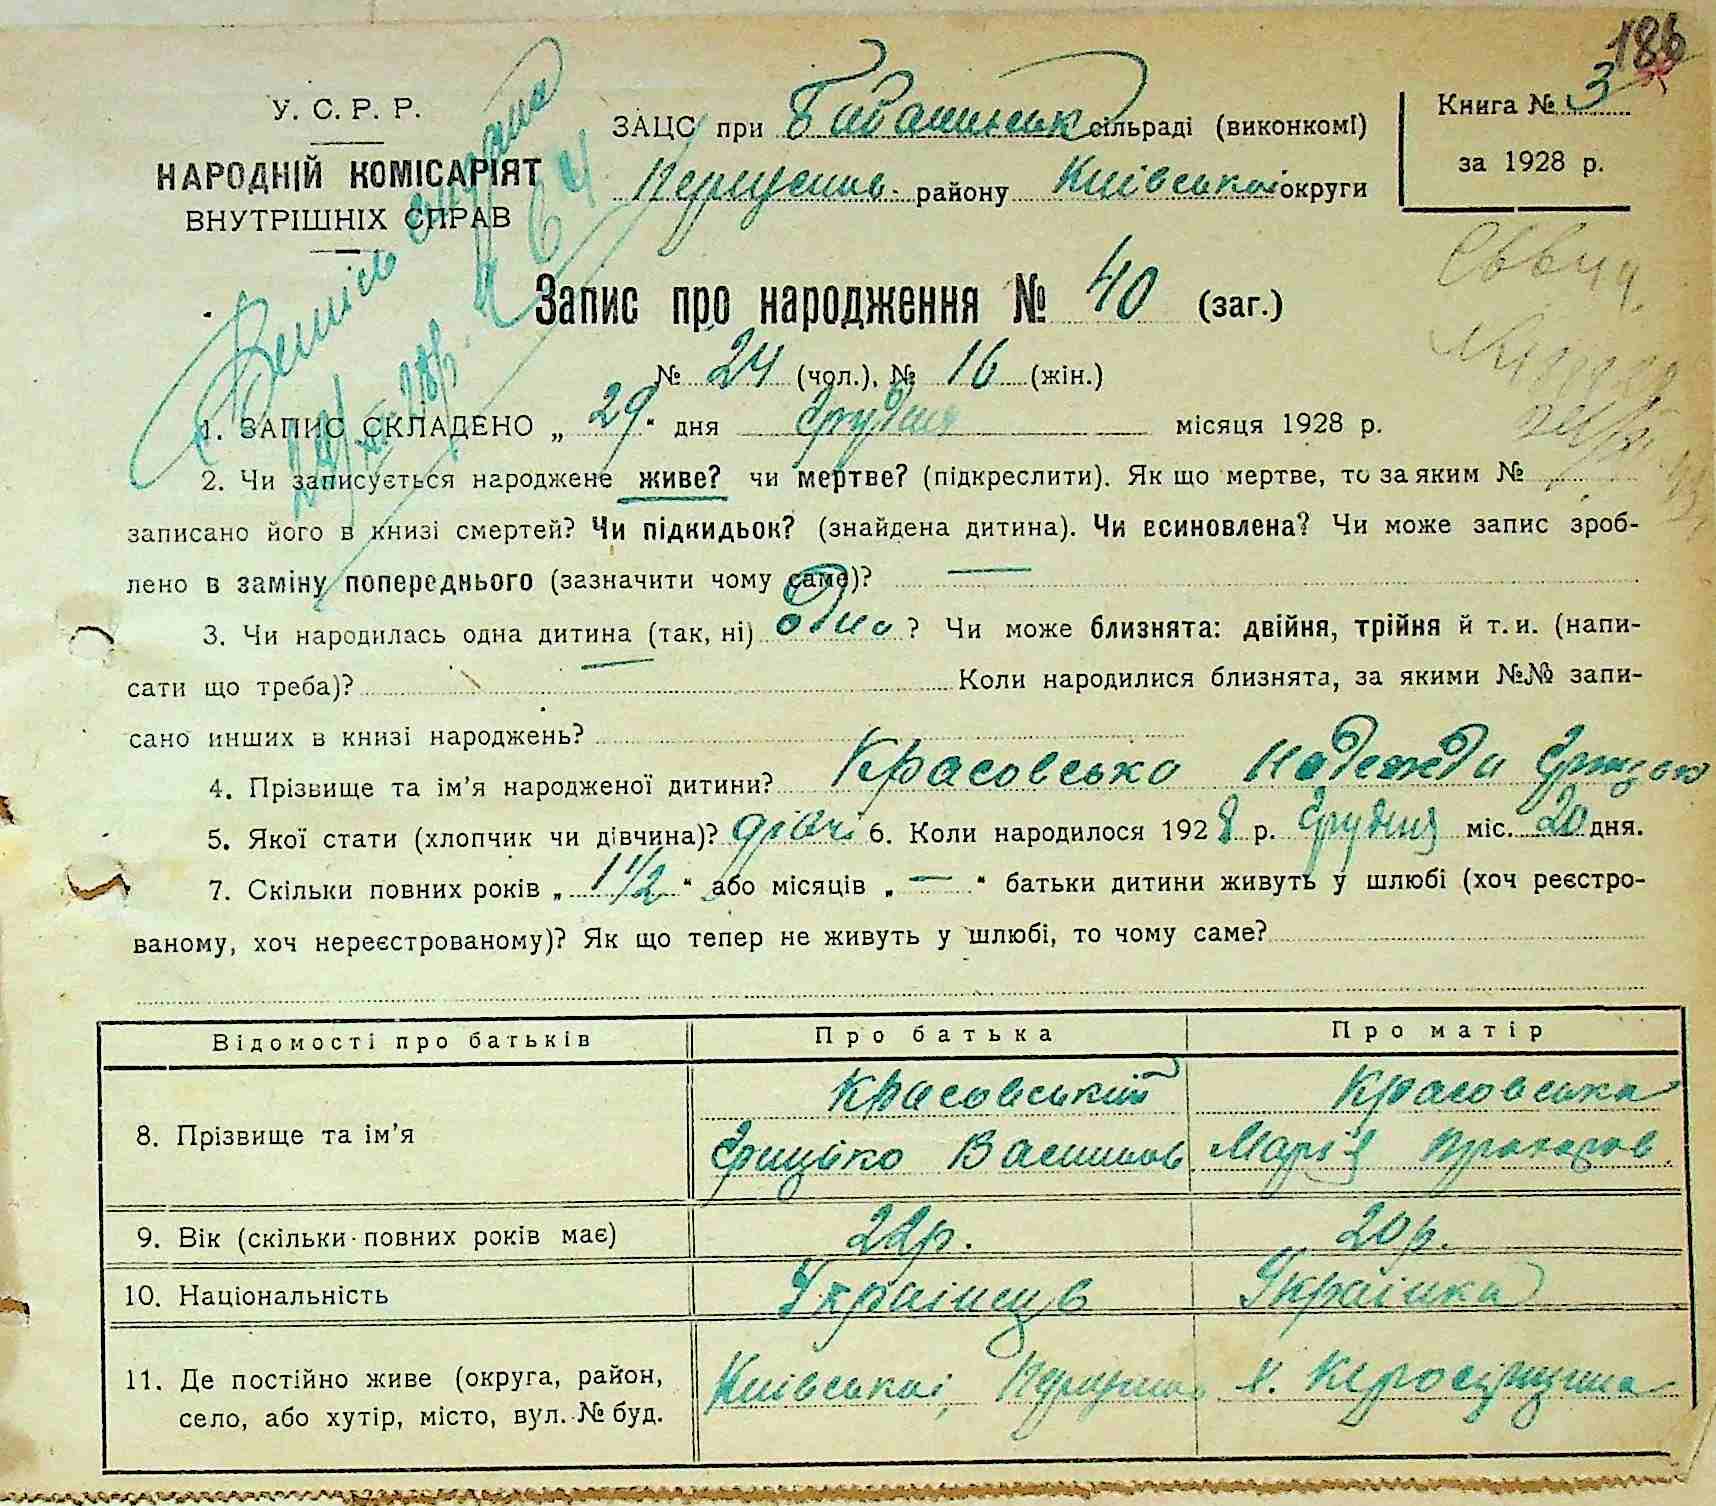 186
У. С. Р. Р.
НАРОДНІЙ КОМІСАРІЯТ
ВНУТРІШНІХ СПРАВ
ЗАЦС при сільраді (виконкомі)
району Київської округи
Книга № 3
за 1928 р.
Запис про народження № 40 (заг.)
№ 24 (чол.), № 16 (жін.)
1. ЗАПИС СКЛАДЕНО „ 29 “ дня Грудня місяця 1928 р.
2. Чи записується народжене живе? чи мертве? (підкреслити). Як що мертве, то за яким №
записано його в книзі смертей? Чи підкидьок? (знайдена дитина). Чи всиновлена? Чи може запис зроб-
лено в заміну попереднього (зазначити чому саме)? —
3. Чи народилась одна дитина (так, ні) одно ? Чи може близнята: двійня, трійня й т. и. (напи-
сати що треба)? Коли народилися близнята, за якими №№ запи-
сано инших в книзі народжень?
4. Прізвище та ім’я народженої дитини? Красовська Надежда
5. Якої стати (хлопчик чи дівчина)? дівч. 6. Коли народилося 1928 р. Грудня міс. 20 дня.
7. Скільки повних років „ 1 1/2 “ або місяців „ — “ батьки дитини живуть у шлюбі (хоч реєстро-
ваному, хоч нереєстрованому)? Як що тепер не живуть у шлюбі, то чому саме?
Відомості про батьків Про батька Про матір
8. Прізвище та ім’я Красовський Красовська
Грицько Васильов Марія Прохоров.
9. Вік (скільки повних років має) 22р. 20р.
10. Національність Українець Українка
11. Де постійно живе (округа, район,
село, або хутір, місто, вул. № буд. Київської,